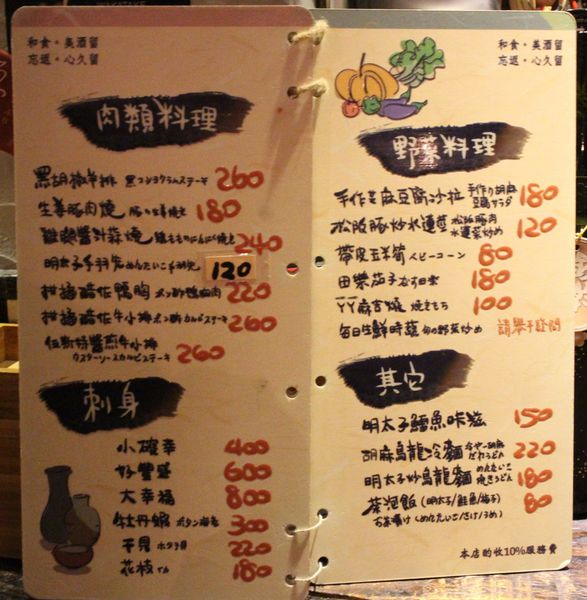 和食・美酒留
忘返・心久留
肉類料理
黑胡椒羊排 黒コショウラムステーキ 260
生姜豚肉燒 豚の生姜焼き 180
雞腿醬汁蒜燒 鶏ももにんにく焼き 240
明太子手羽先 めんたいこ手羽先 120
柑橘醋佐鴨胸 ポン酢鴨胸肉 220
柑橘醋佐牛小排 ポン酢カルビステーキ 260
伍斯特醬煎牛小排 260
ウスターソースカルビステーキ
刺身
小確幸 400
好豐盛 600
大幸福 800
牡丹蝦 ボタン海老 300
干貝 ホタテ貝 220
花枝 イカ 180
和食・美酒留
忘返・心久留
野菜料理
手作芝麻豆腐沙拉 手作り胡麻豆腐サラダ 180
松阪豚炒水蓮菜 松阪豚肉水蓮菜炒め 120
帶皮玉米筍 ベビーコーン 80
田樂茄子 なす田楽 180
ㄚㄚ麻吉燒 焼きもち 100
每日生鮮時蔬 旬の野菜炒め 請舉手發問
其它
明太子鱈魚咔滋 150
胡麻烏龍冷麵 冷やし胡麻だれうどん 220
明太子炒烏龍麵 めんたいこ焼きうどん 180
茶泡飯(明太子/鮭魚/梅子) 80
お茶漬け(めんたいこ/さけ/うめ)
本店酌收10%服務費